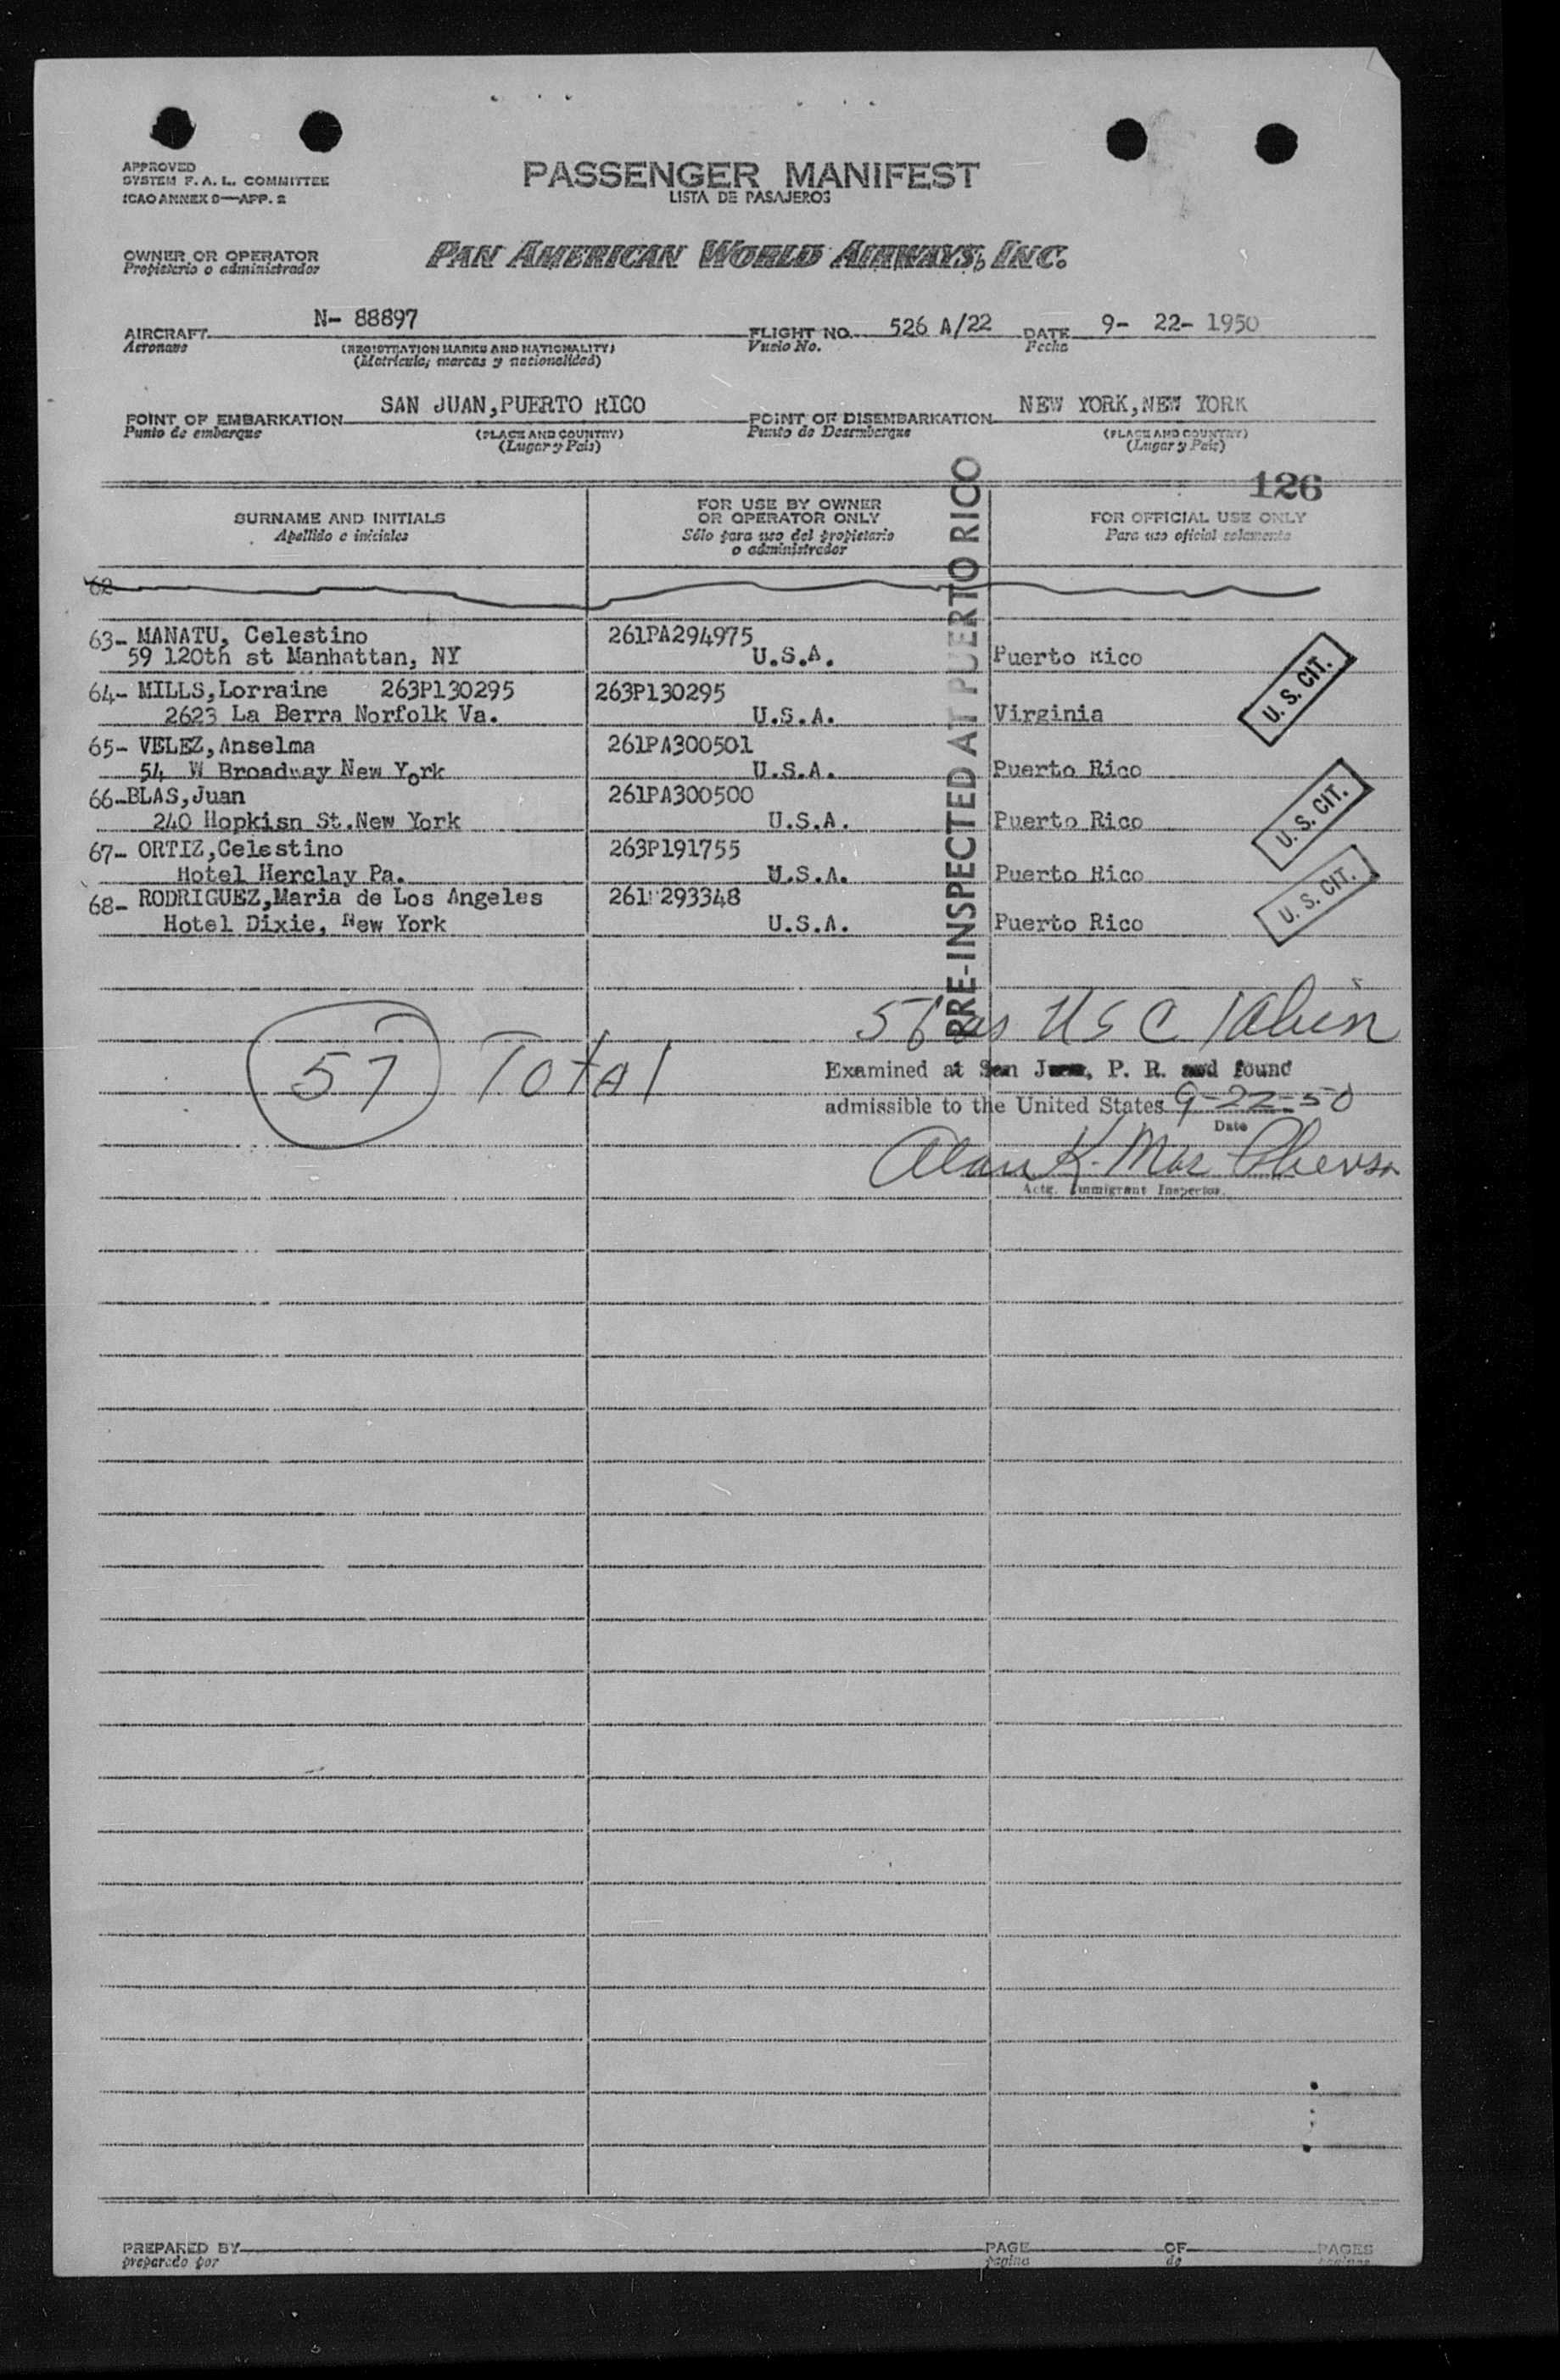 APPROVED
SYSTEM F. A. L. COMMITTEE
ICAO ANNEX 9—APP. 2
PASSENGER MANIFEST
LISTA DE PASAJEROS
OWNER OR OPERATOR
Propietario o administrador
PAN AMERICAN WORLD AIRWAYS, INC.
AIRCRAFT N- 88897 FLIGHT NO. 526 A/22 DATE 9- 22- 1950
Aeronave (REGISTRATION MARKS AND NATIONALITY) Vuelo No. Fecha
(Matricula, marcas y nacionalidad)
POINT OF EMBARKATION SAN JUAN,PUERTO RICO POINT OF DISEMBARKATION NEW YORK,NEW YORK
Punto de embarque (PLACE AND COUNTRY) Punto de Desembarque (PLACE AND COUNTRY)
(Lugar y Pais) (Lugar y Pais)
126
SURNAME AND INITIALS
Apellido e iniciales
FOR USE BY OWNER
OR OPERATOR ONLY
Sólo para uso del propietario
o administrador
FOR OFFICIAL USE ONLY
Para uso oficial solamente
PRE-INSPECTED AT PUERTO RICO
62
63- MANATU, Celestino 261PA294975
59 120th st Manhattan, NY U.S.A. Puerto Rico
64- MILLS,Lorraine 263P130295 263P130295
2623 La Berra Norfolk Va. U.S.A. Virginia
U. S. CIT.
65- VELEZ,Anselma 261PA300501
54 W Broadway New York U.S.A. Puerto Rico
66-BLAS,Juan 261PA300500
240 Hopkisn St.New York U.S.A. Puerto Rico
U. S. CIT.
67- ORTIZ,Celestino 263P191755
Hotel Herclay Pa. U.S.A. Puerto Rico
68- RODRIGUEZ,Maria de Los Angeles 261P293348
Hotel Dixie, New York U.S.A. Puerto Rico
U. S. CIT.
56 as USC 1 alien
57 Total
Examined at San Juan, P. R. and found
admissible to the United States 9-22-50
Date
Alan K. Mac Pherson
Actg. Immigrant Inspector.
PREPARED BY PAGE OF PAGES
preparado por pagina de paginas